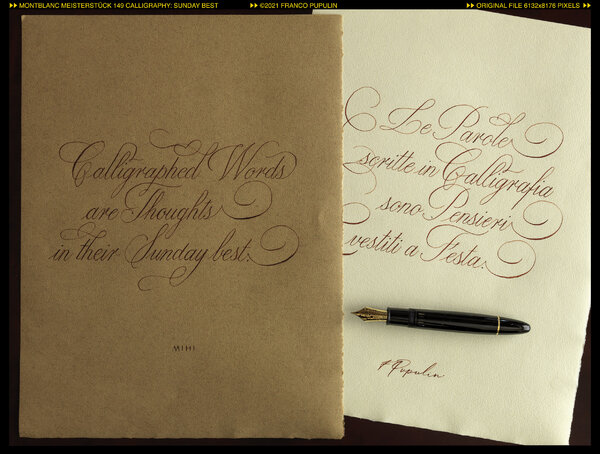 MONTBLANC MEISTERSTÜCK 149 CALLIGRAPHY: SUNDAY BEST
©2021 FRANCO PUPULIN
ORIGINAL FILE 6132x8176 PIXELS
Calligraphed Words
are Thoughts
in their Sunday best.
MIHI
Le Parole
scritte in Calligrafia
sono Pensieri
vestiti a Festa.
F Pupulin